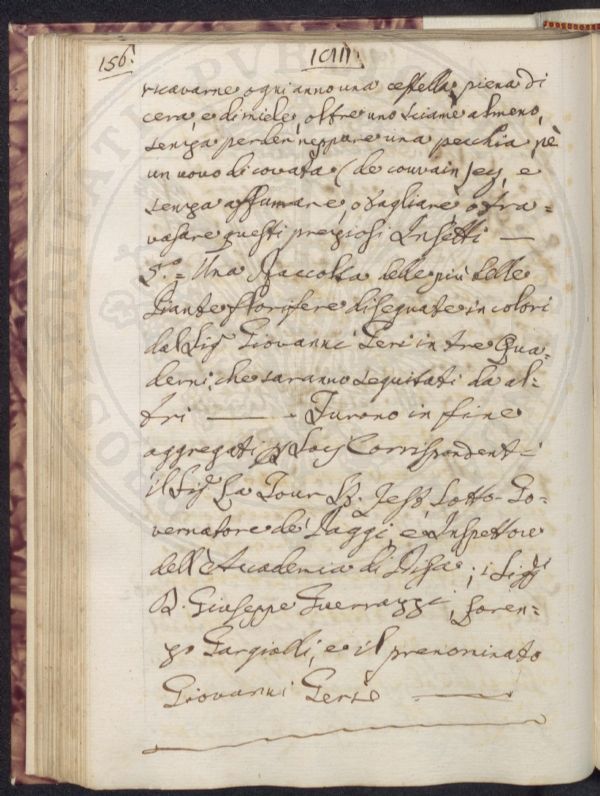 156.
ricavarne ogni anno una cestella piena di
cera, e di miele, oltre uno sciame almeno,
senza perder neppure una pecchia, nè
un uovo di covata (de couvain) ec, e
senza affumare, o tagliare, o tra=
vasare questi preziosi Insetti —
5.° = Una Raccolta delle più belle
Piante florifere disegnate in colori
dal Sig.r Giovanni Geri in tre Qua=
derni, che saranno seguitati da al=
tri ——— Furono in fine
aggregati p Socj Corrispondenti =
il Sig.r La Tour Sotto-Go=
vernatore de' Paggi, e Inspettore
dell'Accademia di Pisa; i Sigg.ri
D. Giuseppe Guerrazzi, Loren=
zo Gargiolli, e il prenominato
Giovanni Geri ———